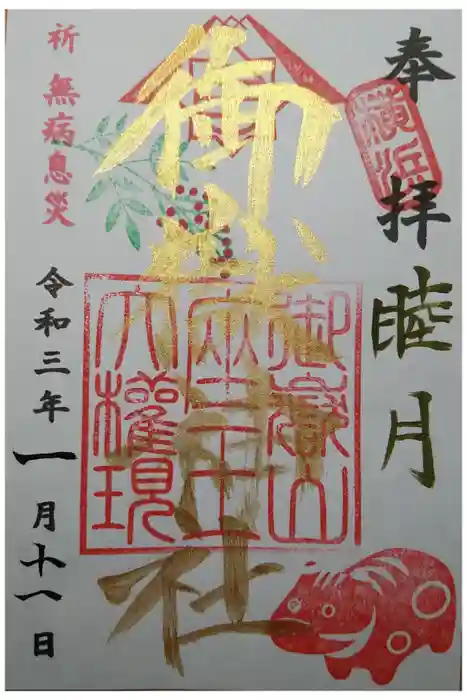 奉拝
横浜
睦月
御嶽神社
御嶽山
大権現
祈 無病息災
令和三年一月十一日